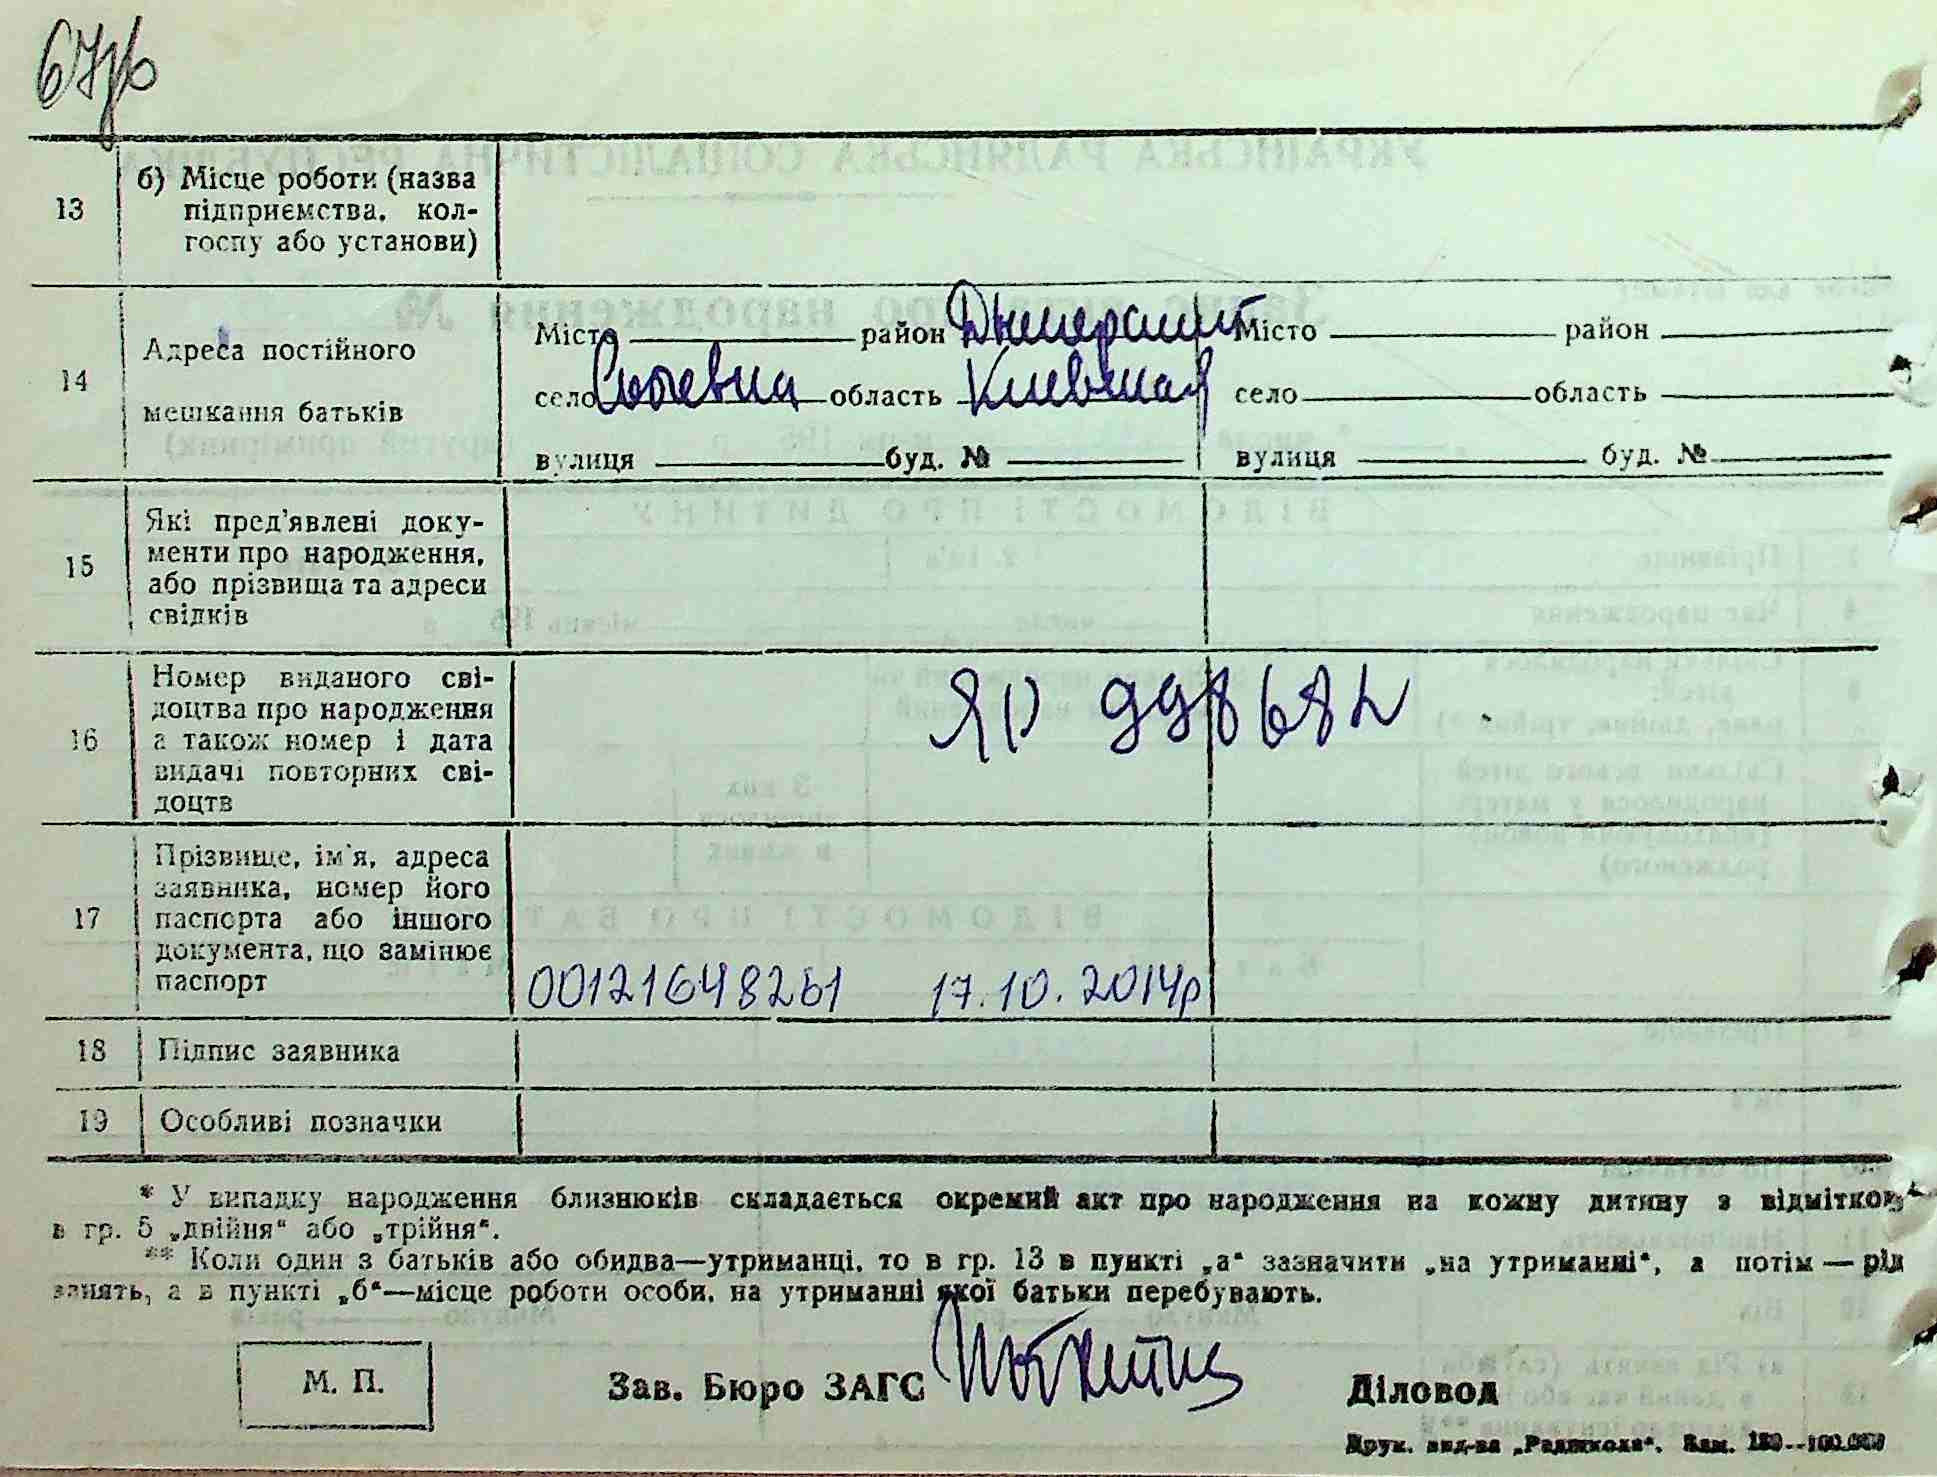 13
б) Місце роботи (назва
підприємства, кол-
госпу або установи)
14
Адреса постійного
мешкання батьків
Місто район Місто район
село область Киевская село область
вулиця буд. № вулиця буд. №
15
Які пред'явлені доку-
менти про народження,
або прізвища та адреси
свідків
16
Номер виданого сві-
доцтва про народження
а також номер і дата
видачі повторних сві-
доцтв
ЯР
17
Прізвище, ім'я, адреса
заявника, номер його
паспорта або іншого
документа, що замінює
паспорт
00121648261 17.10.2014р
18 Підпис заявника
19 Особливі позначки
* У випадку народження близнюків складається окремий акт про народження на кожну дитину з відміткою
в гр. 5 „двійня“ або „трійня“.
** Коли один з батьків або обидва—утриманці, то в гр. 13 в пункті „а“ зазначити „на утриманні“, а потім — рід
занять, а в пункті „б“—місце роботи особи, на утриманні якої батьки перебувають.
М. П.
Зав. Бюро ЗАГС
Діловод
Друк. вид-ва „Радшкола“. Зам.